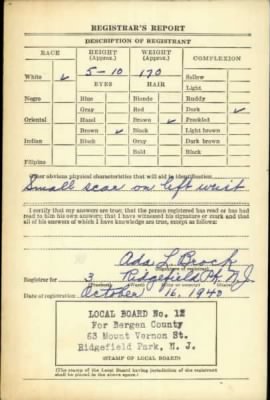 REGISTRAR'S REPORT
DESCRIPTION OF REGISTRANT
RACE HEIGHT (Approx.) WEIGHT (Approx.) COMPLEXION
White ✓ 5-10 170 Sallow
EYES HAIR Light
Negro Blue Blonde Ruddy
Gray Red Dark ✓
Oriental Hazel Brown ✓ Freckled
Brown ✓ Black Light brown
Indian Black Gray Dark brown
Bald Black
Filipino
Other obvious physical characteristics that will aid in identification
Small scar on left wrist
I certify that my answers are true; that the person registered has read or has had
read to him his own answers; that I have witnessed his signature or mark and that
all of his answers of which I have knowledge are true, except as follows:
Ada L Brock
(Signature of registrar)
Registrar for 3 Ridgefield Pk. N.J.
Date of registration October 16, 1940
LOCAL BOARD No. 12
For Bergen County
63 Mount Vernon St.
Ridgefield Park, N. J.
(STAMP OF LOCAL BOARD)
(The stamp of the Local Board having jurisdiction of the registrant
shall be placed in the above space.)